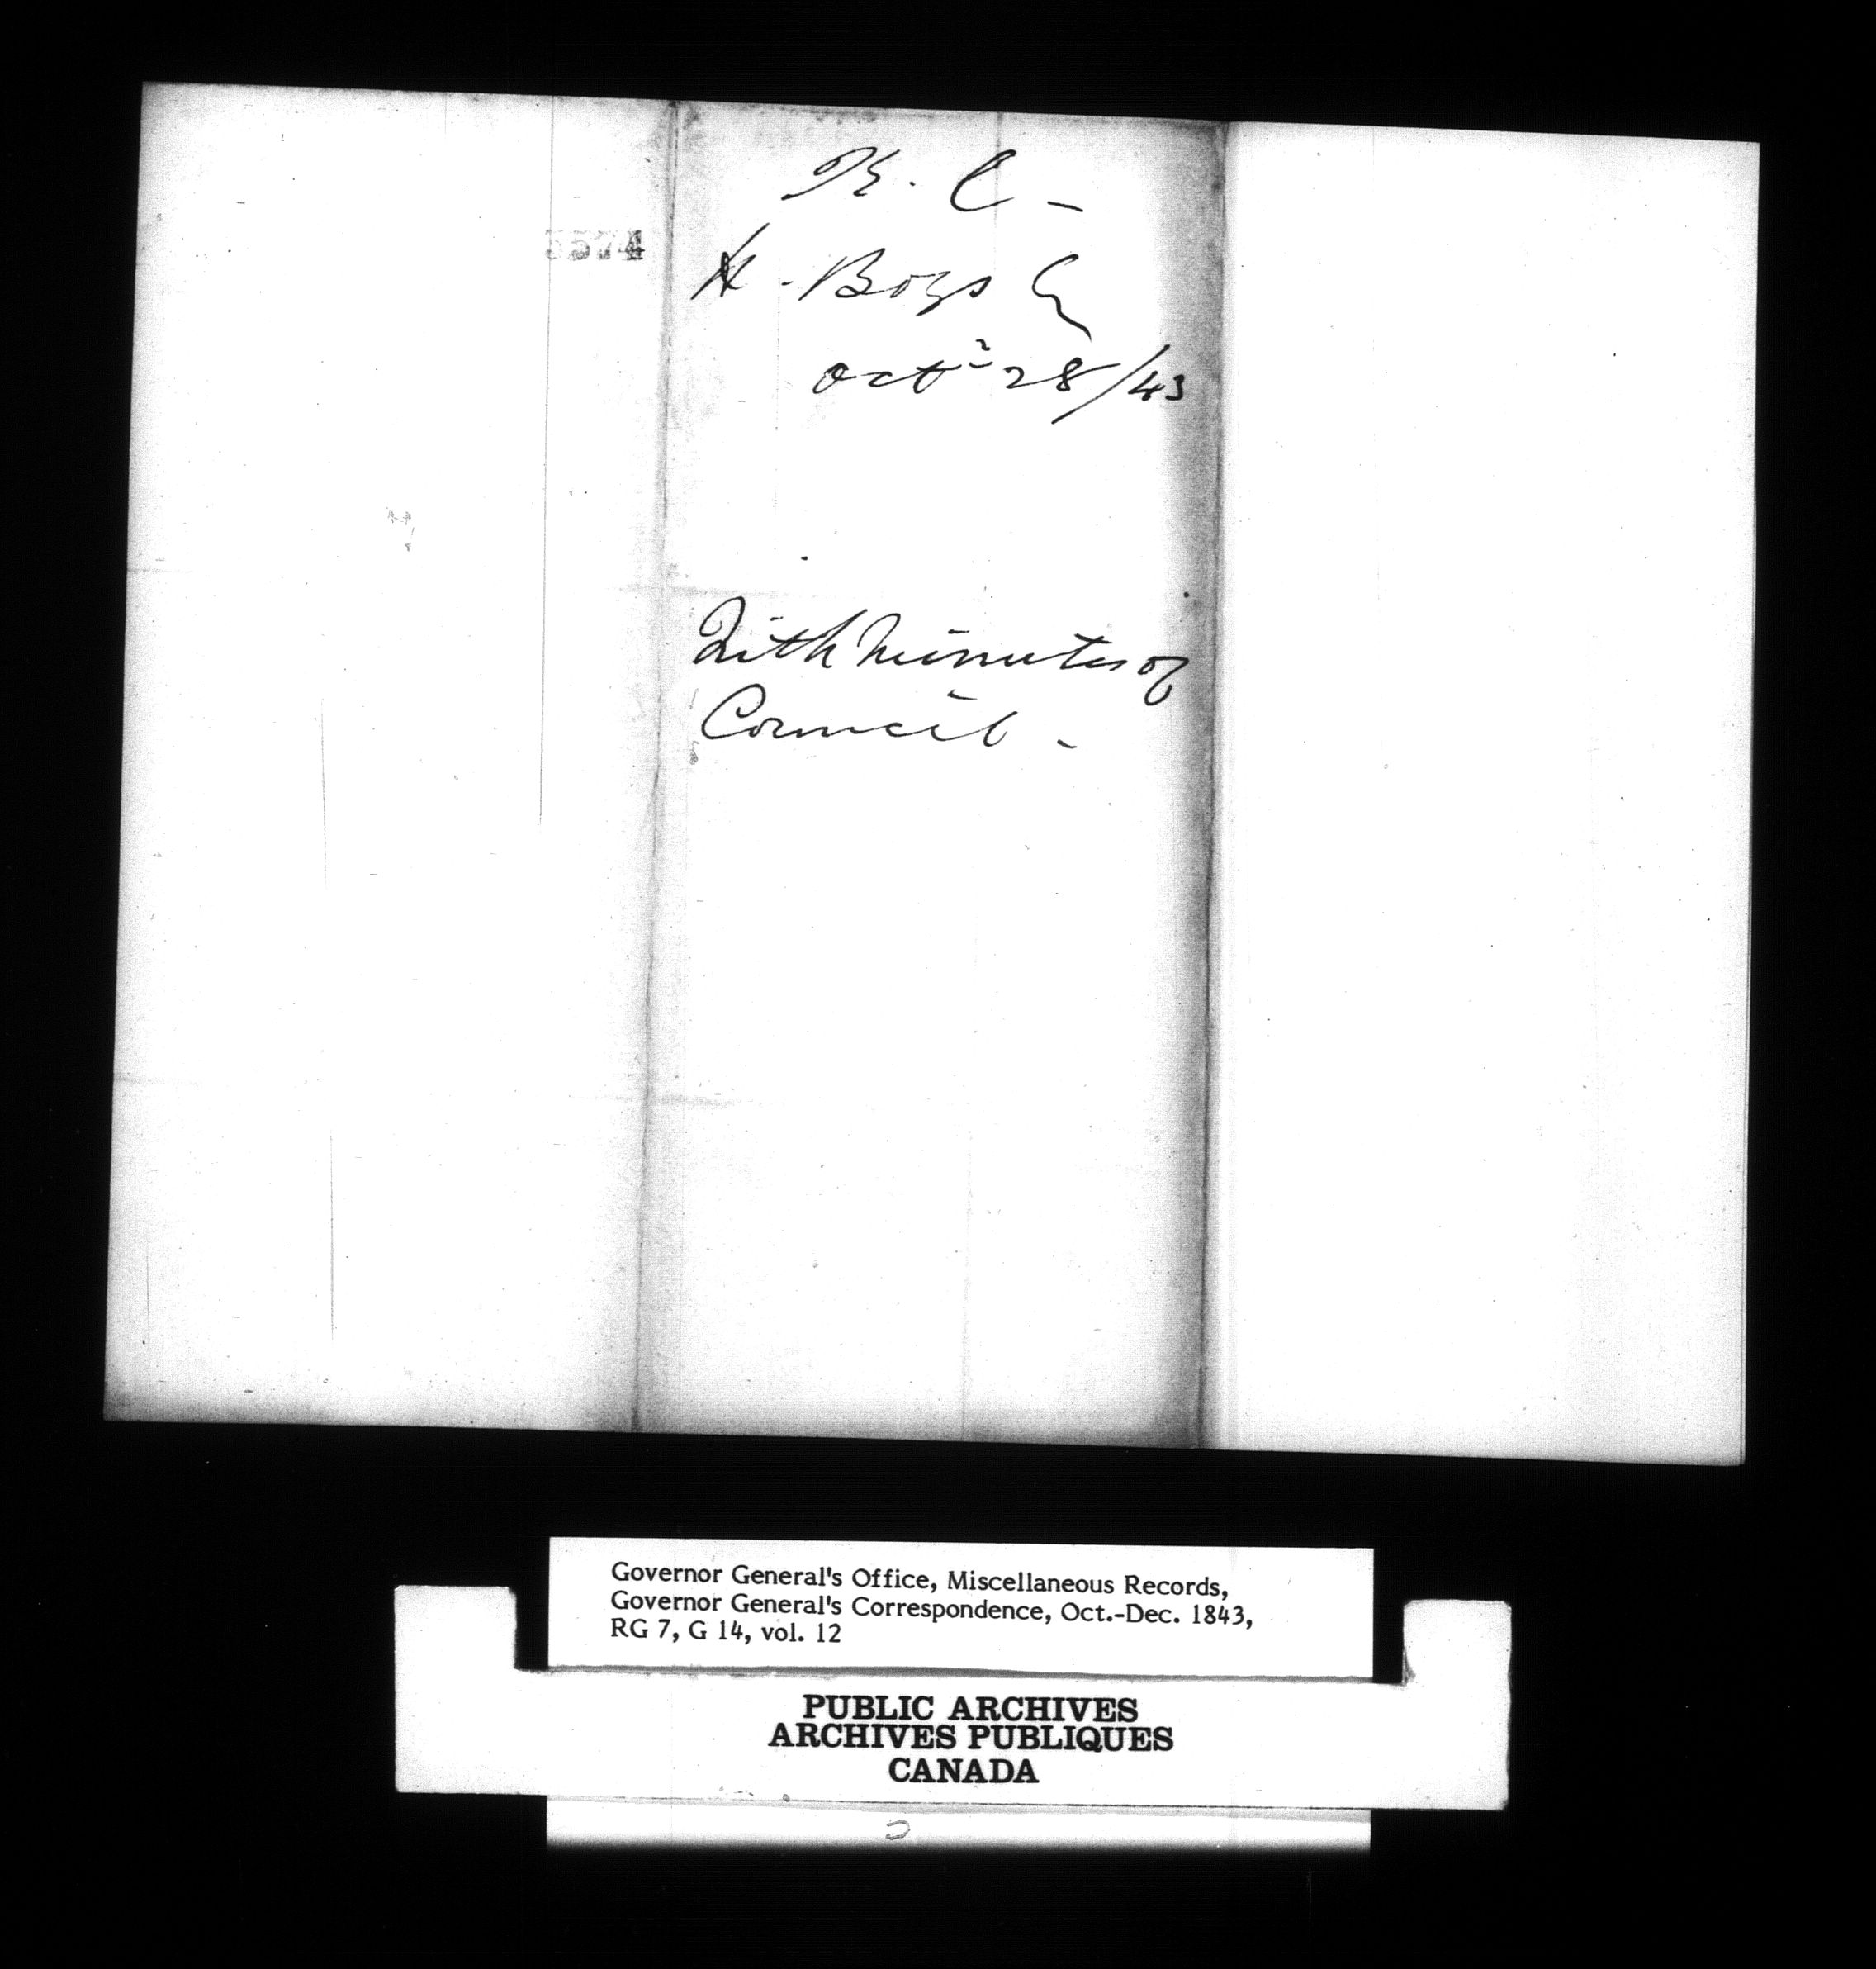 K. C -
H. Boys Esq
Octr 28/43
With Minutes of
Council -
Governor General's Office, Miscellaneous Records,
Governor General's Correspondence, Oct.-Dec. 1843,
RG 7, G 14, vol. 12
PUBLIC ARCHIVES
ARCHIVES PUBLIQUES
CANADA